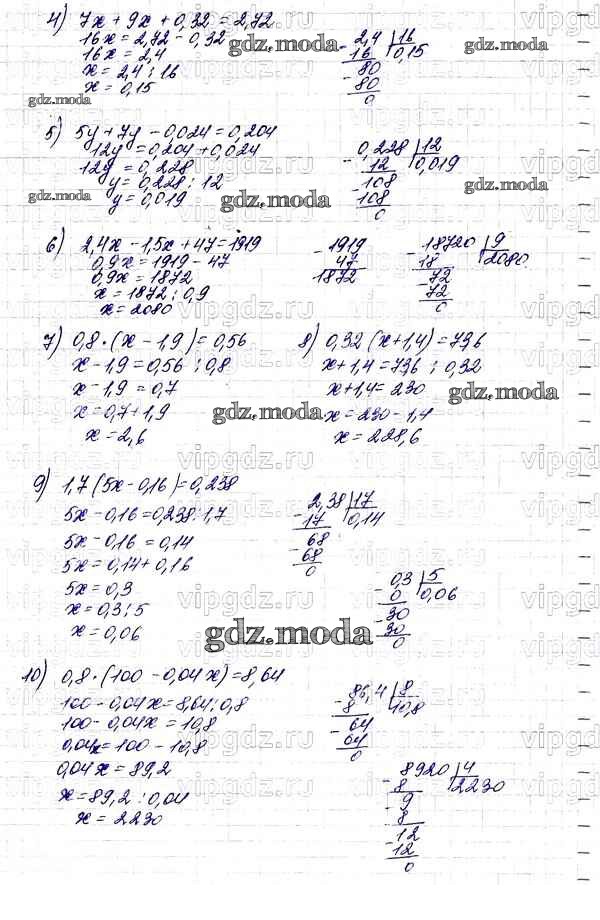 4) 7x + 9x + 0,32 = 2,72
16x = 2,72 - 0,32
16x = 2,4
x = 2,4 : 16
x = 0,15
- 2,4 | 16
16 | 0,15
- 80
80
0
5) 5y + 7y - 0,024 = 0,204
12y = 0,204 + 0,024
12y = 0,228
y = 0,228 : 12
y = 0,019
- 0,228 | 12
12 | 0,019
- 108
108
0
6) 2,4x - 1,5x + 47 = 1919
0,9x = 1919 - 47
0,9x = 1872
x = 1872 : 0,9
x = 2080
- 1919
47
1872
- 18720 | 9
18 | 2080
- 72
72
0
7) 0,8 · (x - 1,9) = 0,56
x - 1,9 = 0,56 : 0,8
x - 1,9 = 0,7
x = 0,7 + 1,9
x = 2,6
8) 0,32 (x + 1,4) = 736
x + 1,4 = 736 : 0,32
x + 1,4 = 230
x = 230 - 1,4
x = 228,6
9) 1,7 (5x - 0,16) = 0,238
5x - 0,16 = 0,238 : 1,7
5x - 0,16 = 0,14
5x = 0,14 + 0,16
5x = 0,3
x = 0,3 : 5
x = 0,06
- 2,38 | 17
17 | 0,14
- 68
68
0
- 0,3 | 5
0 | 0,06
- 30
30
0
10) 0,8 · (100 - 0,04x) = 8,64
100 - 0,04x = 8,64 : 0,8
100 - 0,04x = 10,8
0,04x = 100 - 10,8
0,04x = 89,2
x = 89,2 : 0,04
x = 2230
- 86,4 | 8
8 | 10,8
- 64
64
0
- 8920 | 4
8 | 2230
- 9
8
- 12
12
0
gdz.moda
vipgdz.ru